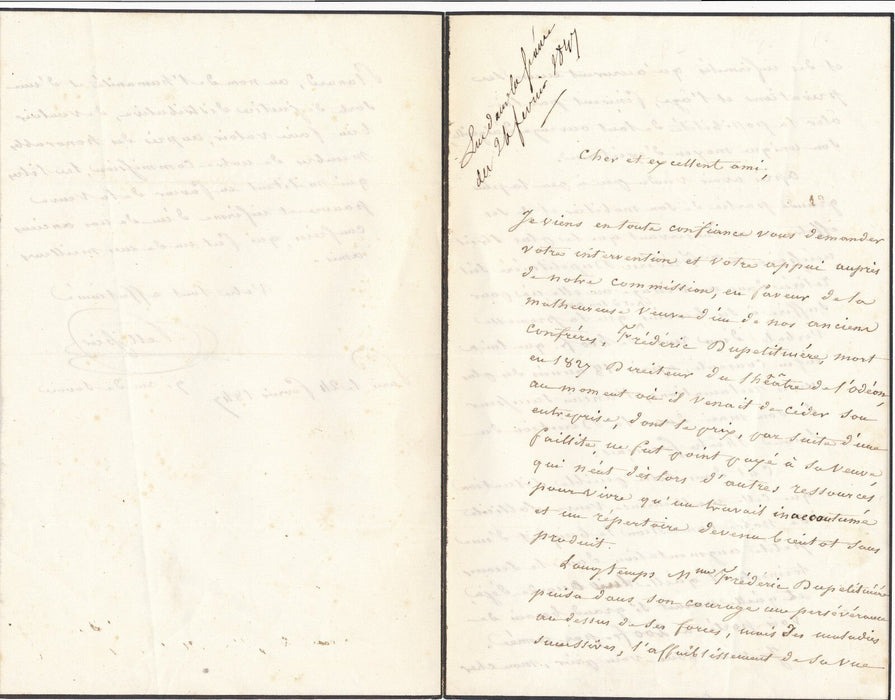 Lue dans la séance
du 26 février 1847
Cher et excellent ami,
Je viens en toute confiance vous demander
votre intervention et votre appui auprès
de notre commission, en faveur de la
malheureuse veuve d'un de nos anciens
confrères, Frédéric Dupetitmère, mort
en 1827 Directeur du théâtre de l'odéon,
au moment où il venait de céder son
entreprise, dont le prix, par suite d'une
faillite, ne fut point payé à sa veuve
qui n'eut dès lors d'autres ressources
pour vivre qu'un travail inaccoutumé
et un répertoire devenu bientot sans
produit.
Longtemps Mme Frédéric Dupetitmère
puisa dans son courage une persévérance
au dessus de ses forces, mais des maladies
successives, l'affaiblissement de sa vue